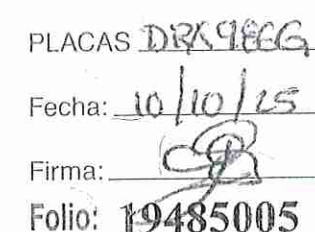 PLACAS
Fecha: 10/10/25
Firma:
Folio: 19485005